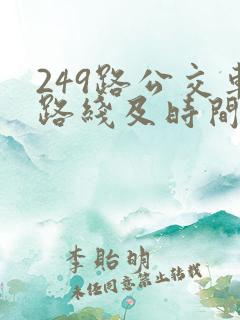 249路公交車
路綫及時間
李貽明
未经同意禁止转载